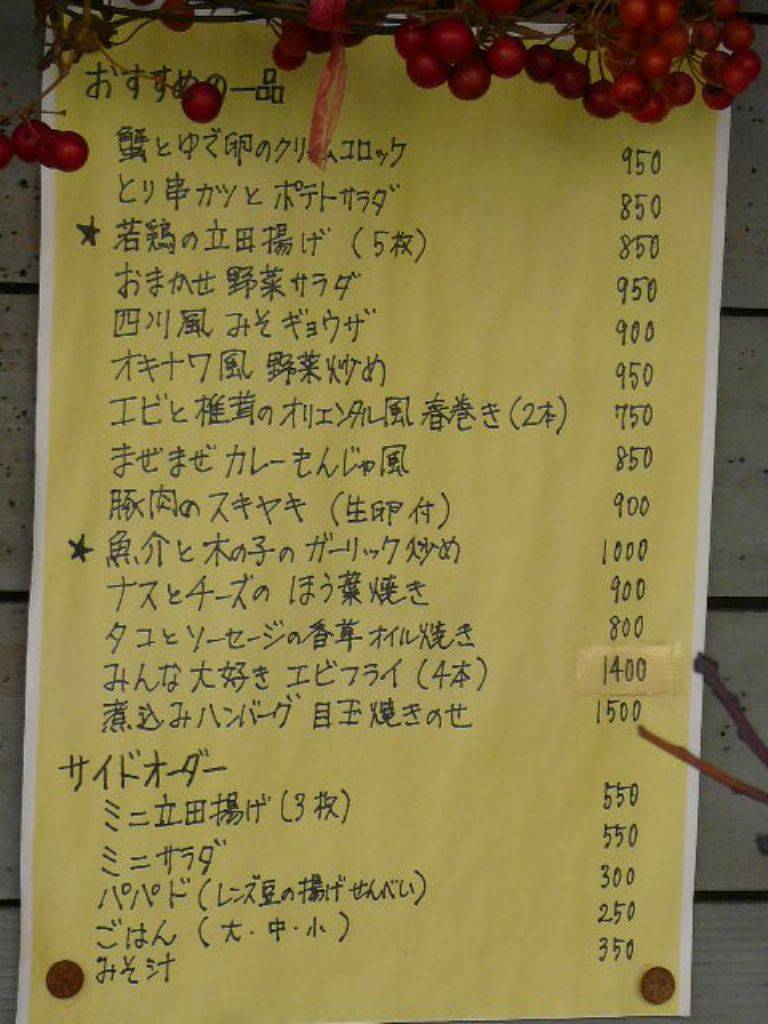 おすすめの一品
蟹とゆで卵のクリームコロッケ 950
とり串カツと ポテトサラダ 850
★ 若鶏の立田揚げ (5枚) 850
おまかせ 野菜サラダ 950
四川風 みそギョウザ 900
オキナワ風 野菜炒め 950
エビと椎茸のオリエンタル風 春巻き(2本) 750
まぜまぜ カレーもんじゃ風 850
豚肉の スキヤキ (生卵付) 900
★ 魚介と木の子の ガーリック炒め 1000
ナスとチーズの ほう葉焼き 900
タコとソーセージの香草オイル焼き 800
みんな大好き エビフライ (4本) 1400
煮込みハンバーグ 目玉焼きのせ 1500
サイドオーダー
ミニ立田揚げ (3枚) 550
ミニサラダ 550
パパド (レンズ豆の揚げせんべい) 300
ごはん (大・中・小) 250
みそ汁 350